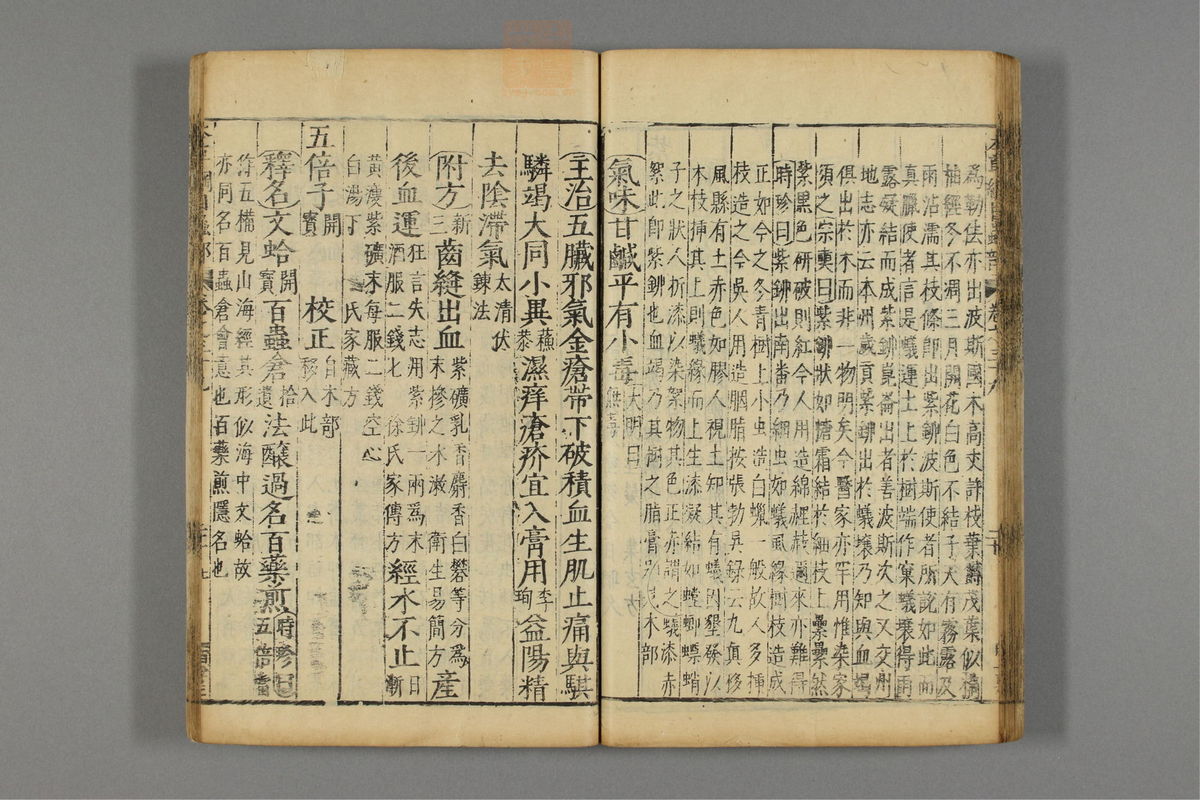 為勒佉亦出波斯國木高丈許枝葉鬱茂葉似橘
柚經冬不凋三月開花白色不結子天有霧露及
雨沾濡其枝條即出紫鉚波斯使者所說如此而
真臘使者言是蟻運土上於樹端作窠蟻壤得雨
露凝結而成紫鉚崑崙出者善波斯次之又交州
地志亦云本州歲貢紫鉚出於蟻壤乃知與血竭
俱出於木而非一物明矣今醫家亦罕用惟染家
須之宗奭曰紫鉚狀如糖霜結於細枝上纍纍然
紫黑色研破則紅今人用造綿𦙶枝邇來亦難得
時珍曰紫鉚出南番乃細虫如蟻虱緣樹枝造成
正如今之冬青樹上小虫造白蠟一般故人多揷
枝造之今吳人用造胭脂按張勃吳録云九真移
風縣有土赤色如膠人視土知其有蟻因墾發以
木枝揷其上則蟻緣而上生漆凝結如螳螂螵蛸
子之狀人折漆以染絮物其色正赤謂之蟻漆赤
絮此即紫鉚也血竭乃其樹之脂膏別見木部
氣味甘鹹平有小毒大明曰無毒
主治五臟邪氣金瘡帶下破積血生肌止痛與騏
驎竭大同小異蘇恭濕痒瘡疥宜入膏用李珣益陽精
去陰滯氣太清伏鍊法
附方新三齒縫出血紫礦乳香麝香白礬等分為末摻之水漱 衛生易簡方產
後血運狂言失志用紫鉚一兩為末酒服二錢匕 徐氏家傳方經水不止日漸
黃瘦紫礦末每服二錢空心
白湯下 氏家藏方
五倍子開寶 校正自木部移入此
釋名文蛤開寶百蟲倉拾遺法釀過名百藥煎時珍曰五倍當
作五㯐見山海經其形似海中文蛤故
亦同名百蟲倉會意也百藥煎隱名也